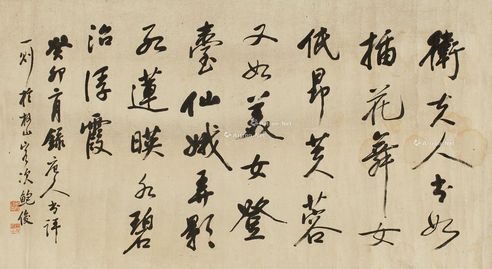 衛夫人書如
插花舞女
低昂芙蓉
又如美女登
臺仙娥弄影
紅蓮暎水碧
沼浮霞
癸卯 月錄唐人書評
一則於 山 次鮑俊